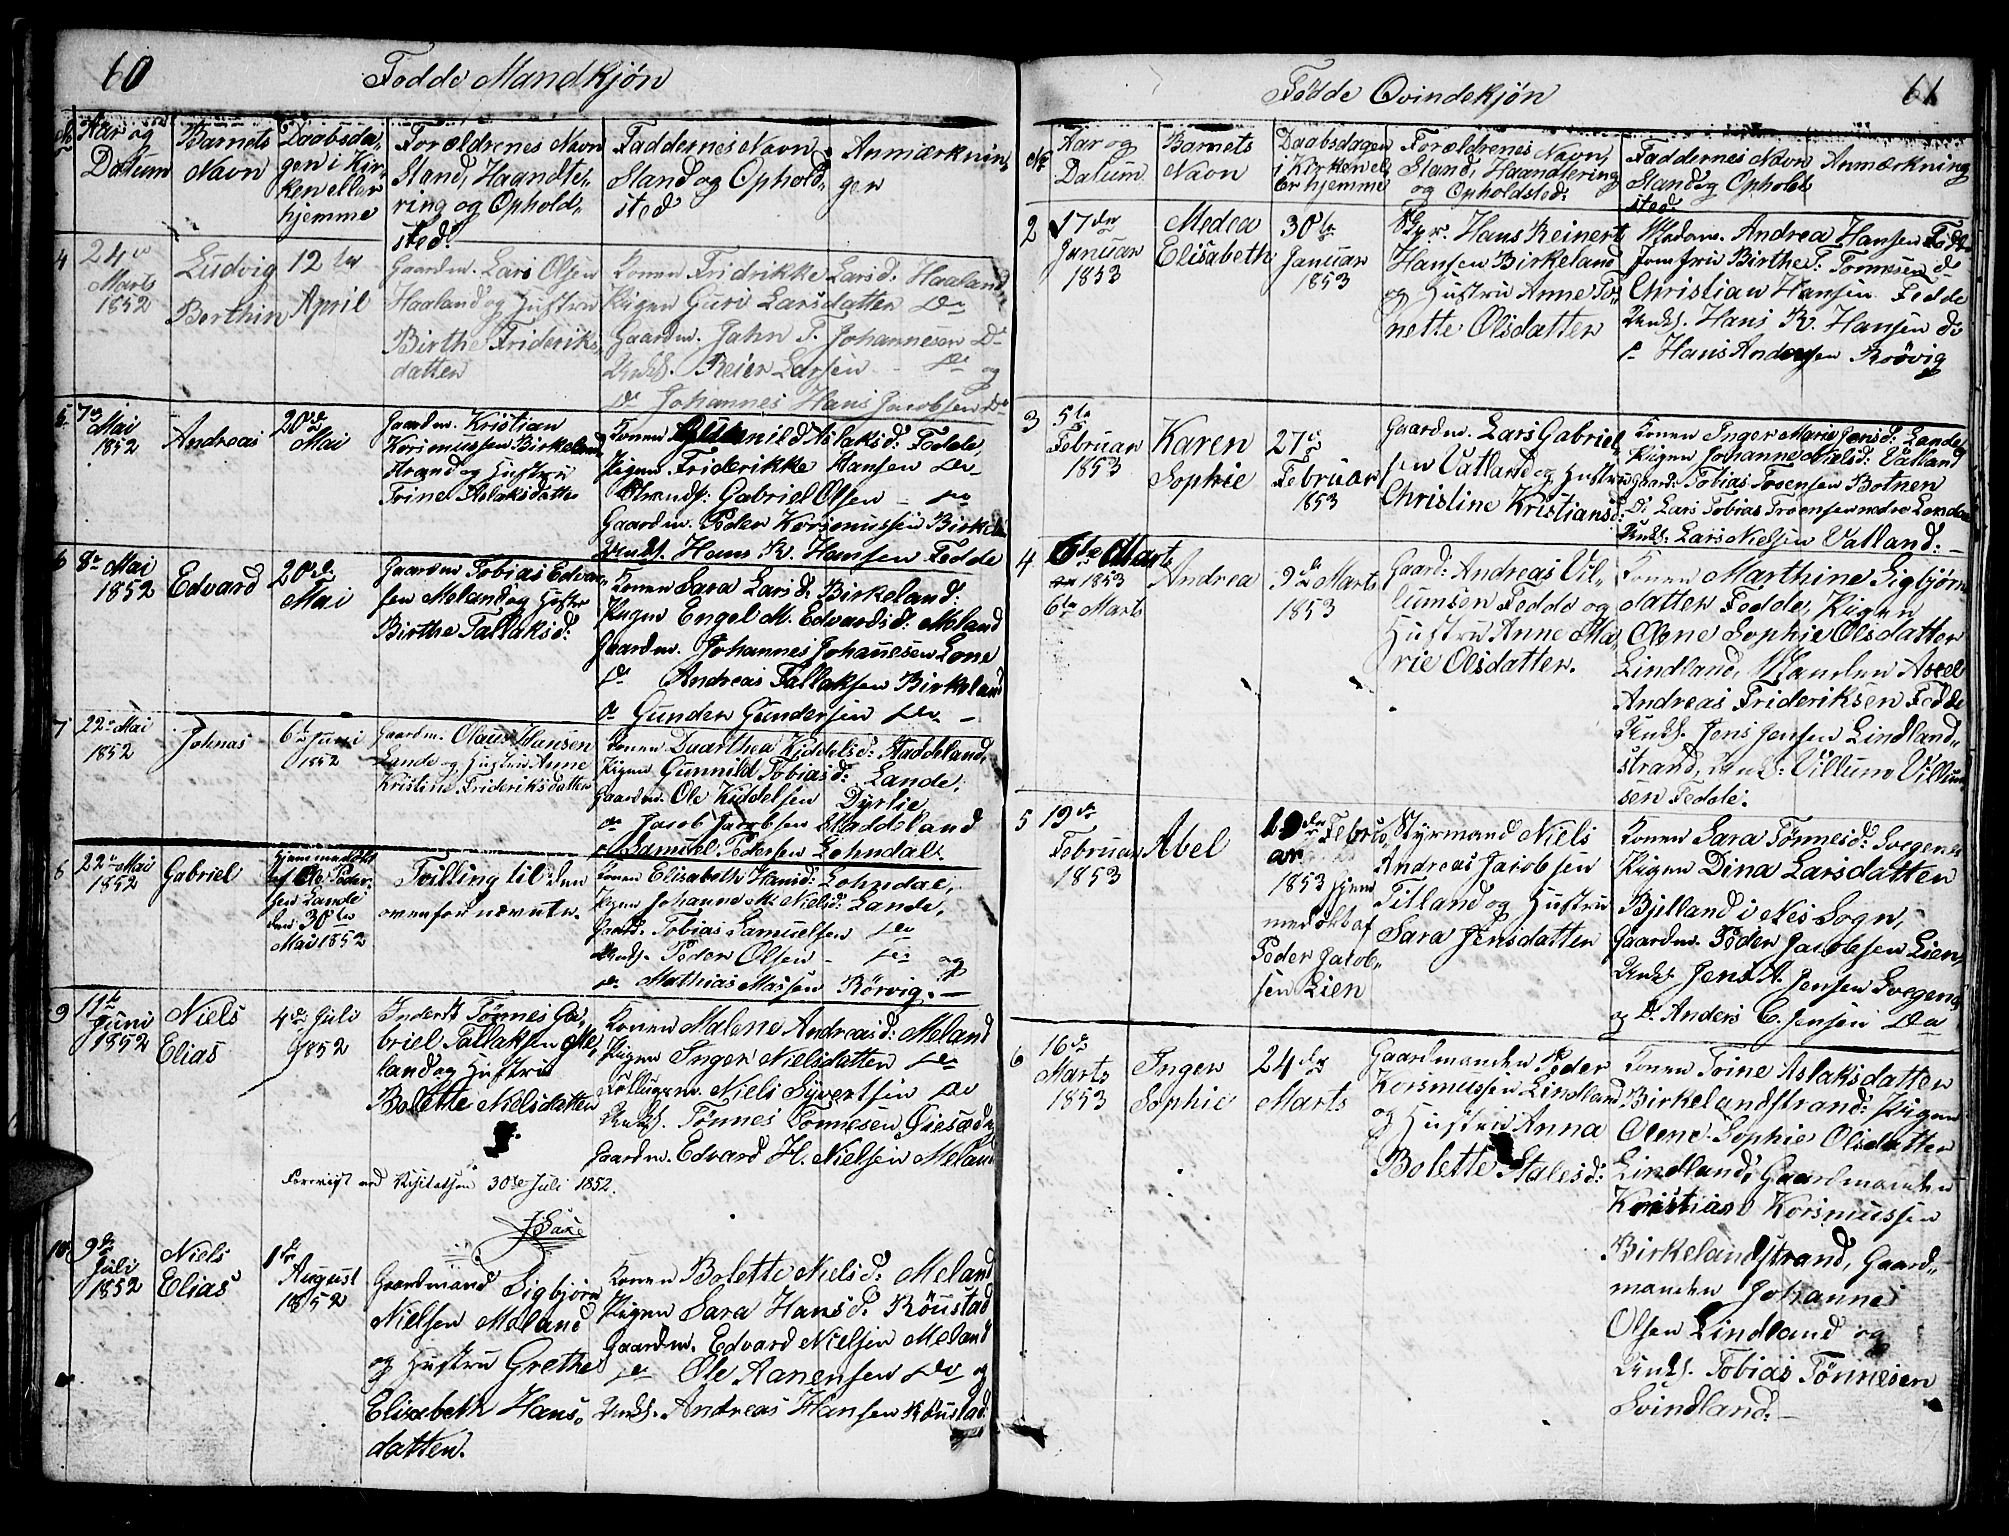 60
Fødde Mandkjøn
No
Aar og
Datum
Barnets
Navn
Daabsda-
gen i Kir-
ken eller
hjemme
Forældrenes Navn
Stand, Haandte-
ring og Ophold-
sted.
Faddernes Navn
Stand og Ophold-
sted
Anmærknin-
gen
4
24de
Marts
1852
Ludvig
Berthin
12te
April
Gaardm. Lars Olsen
Haaland og Hustru
Birthe Frideriks-
datter
Konen Fridrikke Larsd. Haaland
Pigen Guri Larsdatter Do
Gaardm. Jahn T. Johannesen Do
Unkl. Reier Larsen - Do og
Do Johannes Hans Jacobsen Do
5
7de
Mai
1852
Andreas
20de
Mai
Gaardm. Kristian
Korsmussen Birkeland
strand og Hustru
Trine Aslaksdatter
Konen Gunild Aslaksd: Fedde,
Pigen Friderikke Hansen Do
Strands: Gabriel Olsen - Do
Gaardm. Peder Korsmussen Birkeln
Unkl. Hans K. Hansen Fedde
6
8de Mai
1852
Edvard
20de
Mai
Gaardm Tobias Edvar-
sen Meland og Hustr
Birthe Tallaksd:
Konen Sara Larsd: Birkeland:
Pigen Engel M. Edvardsd: Meland
Gaardm. Johannes Johannesen Lone
Do Andreas Tallaksen Birkeland
do Gunder Gundersen Do -
7
22de Mai
1852
Johnas
6te Juni
1852
Gaardm. Olaus Hansen
Lande og Hustru Anne
Kristine Frideriksdatter
Konen Daarthea Kiddelsd: Staddeland,
Pigen Gunnild Tobiasd: Lande,
Gaardm. Ole Kiddelsen Dyrlie
do Jacob Jacobsen Staddeland
Samuel Pedersen Lohndal.
8
22de Mai
1852
Gabriel
Hjemmedøbt
af Ole Peder-
sen Lande
den 30te
Mai 1852
Tvilling til den
ovenfor nævnte.
Konen Elisabeth Hansd: Lohndal,
Pigen Johanne M. Nielsd: Lande,
Gaard: Tobias Samuelsen Do
Unkl. Peder Olsen - Do og
do Mathias Massen Rørvig. -
9
11te
Juni
1852
Niels
Elias
4de Juli
1852
Inderst Tønnes Ga-
briel Tallaksen Me-
land og Hustru
Bolette Nielsdatter
Konen Malene Andreasd: Meland
Pigen Inger Nielsdatter Do
Niels Syvertsen Do
Unkl. Tønnes Tønnesen Øiesæd
Gaardm. Edvard H. Nielsen Meland
Forevist ved Visitatsen 30te Juli 1852.
10
9de
Juli
1852
Niels
Elias
1te
August
1852
Gaardmand Sigbjørn
Nielsen Meland
og Hustru Grethe
Elisabeth Hans-
datter.
Konen Bolette Nielsd: Meland
Pigen Sara Hansd: Røustad
Gaardm. Edvard Nielsen Meland
Do Ole Aanensen Do og
Unkl. Andreas Hansen Røustad
61
Fødde Qvindekjøn
No
Aar og
Datum
Barnets
Navn
Daabsdagen
i Kirken el-
ler hjemme
Forældrenes Navn,
Stand, Haandtering
og Opholdsted:
Faddernes Navn
Stand og Ophold
sted:
Anmærkning
2
17de
Januar
1853
Medea
Elisabeth
30te
Januar
1853
Hans Reinert
Hansen Birkeland
og Hustru Anne To-
nette Olsdatter
Madam. Andrea Hansen Fedde
Jomfru Birthe T. Tønnesen do
Christian Hansen Fedde
Unkl. Hans K. Hansen do
Hans Andersen Roøvig
3
5te
Februar
1853
Karen
Sophie
27de
Februar
1853
Gaardm. Lars Gabriel-
sen Vatland og Hustru
Christine Kristiansd:
Konen Inger Marie Jensd: Lande
Pigen Johanne Nielsd: Vatland
Gaard: Tobias Troensen Botnen
Do Lars Tobias Troensen nedre Lande
Unkl: Lars Nielsen Vatland: -
4
6te Marts
1853
6te Marts
Andrea
9de Marts
1853
Gaard: Andreas Vil-
lumsen Fedde og
Hustru Anne Ma-
rie Olsdatter.
Konen Marthine Sigbjørns-
datter Fedde, Pigen
Olene Sophie Olsdatter
Lindland, Manden Axcel
Andreas Frideriksen Fedde
Unkl. Jens Jensen Lindland-
strand, Unkl: Villum Villum-
sen Fedde:
5
19de
Februar
1853
Abel
19de Febru-
ar
1853 hjem-
medøbt af
Peder Jacob-
sen Lien
Styrmand Niels
Andreas Jacobsen
Titland og Hustru
Sara Jensdatter
Konen Sara Tønnesd: Svegenes
Pigen Dina Larsdatter
Bjelland i Nes Sogn,
Gaardm. Peder Jacobsen Lien,
Unkl Jens A. Jensen Svegenes
og Do Anders C. Jensen Do
6
16de
Marts
1853
Inger
Sophie
24de
Marts
Gaardmanden Peder
Korsmussen Lindland
og Hustru Anna
Bolette Stalesd:
Konen Trine Aslaksdatter
Birkelandstrand: Pigen
Olene Sophie Olsdatter
Lindland, Gaardmanden
Kristian Korsmussen
Birkelandstrand, Gaard-
manden Johannes
Olsen Lindland og
Unkl. Tobias Tønnesen
Svindland: -